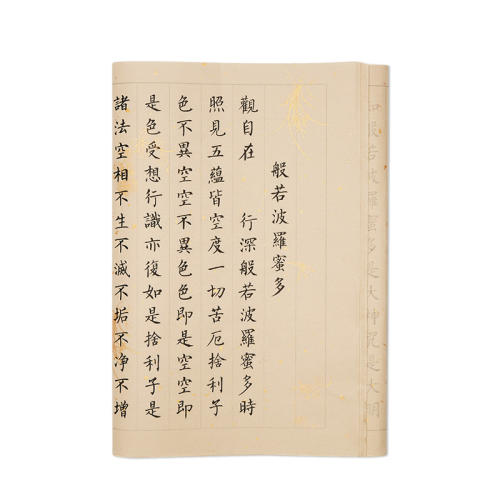 知般若波羅蜜多是大神咒是大明
般若波羅蜜多
觀自在 行深般若波羅蜜多時
照見五蘊皆空度一切苦厄捨利子
色不異空空不異色色即是空空即
是色受想行識亦復如是捨利子是
諸法空相不生不滅不垢不净不增